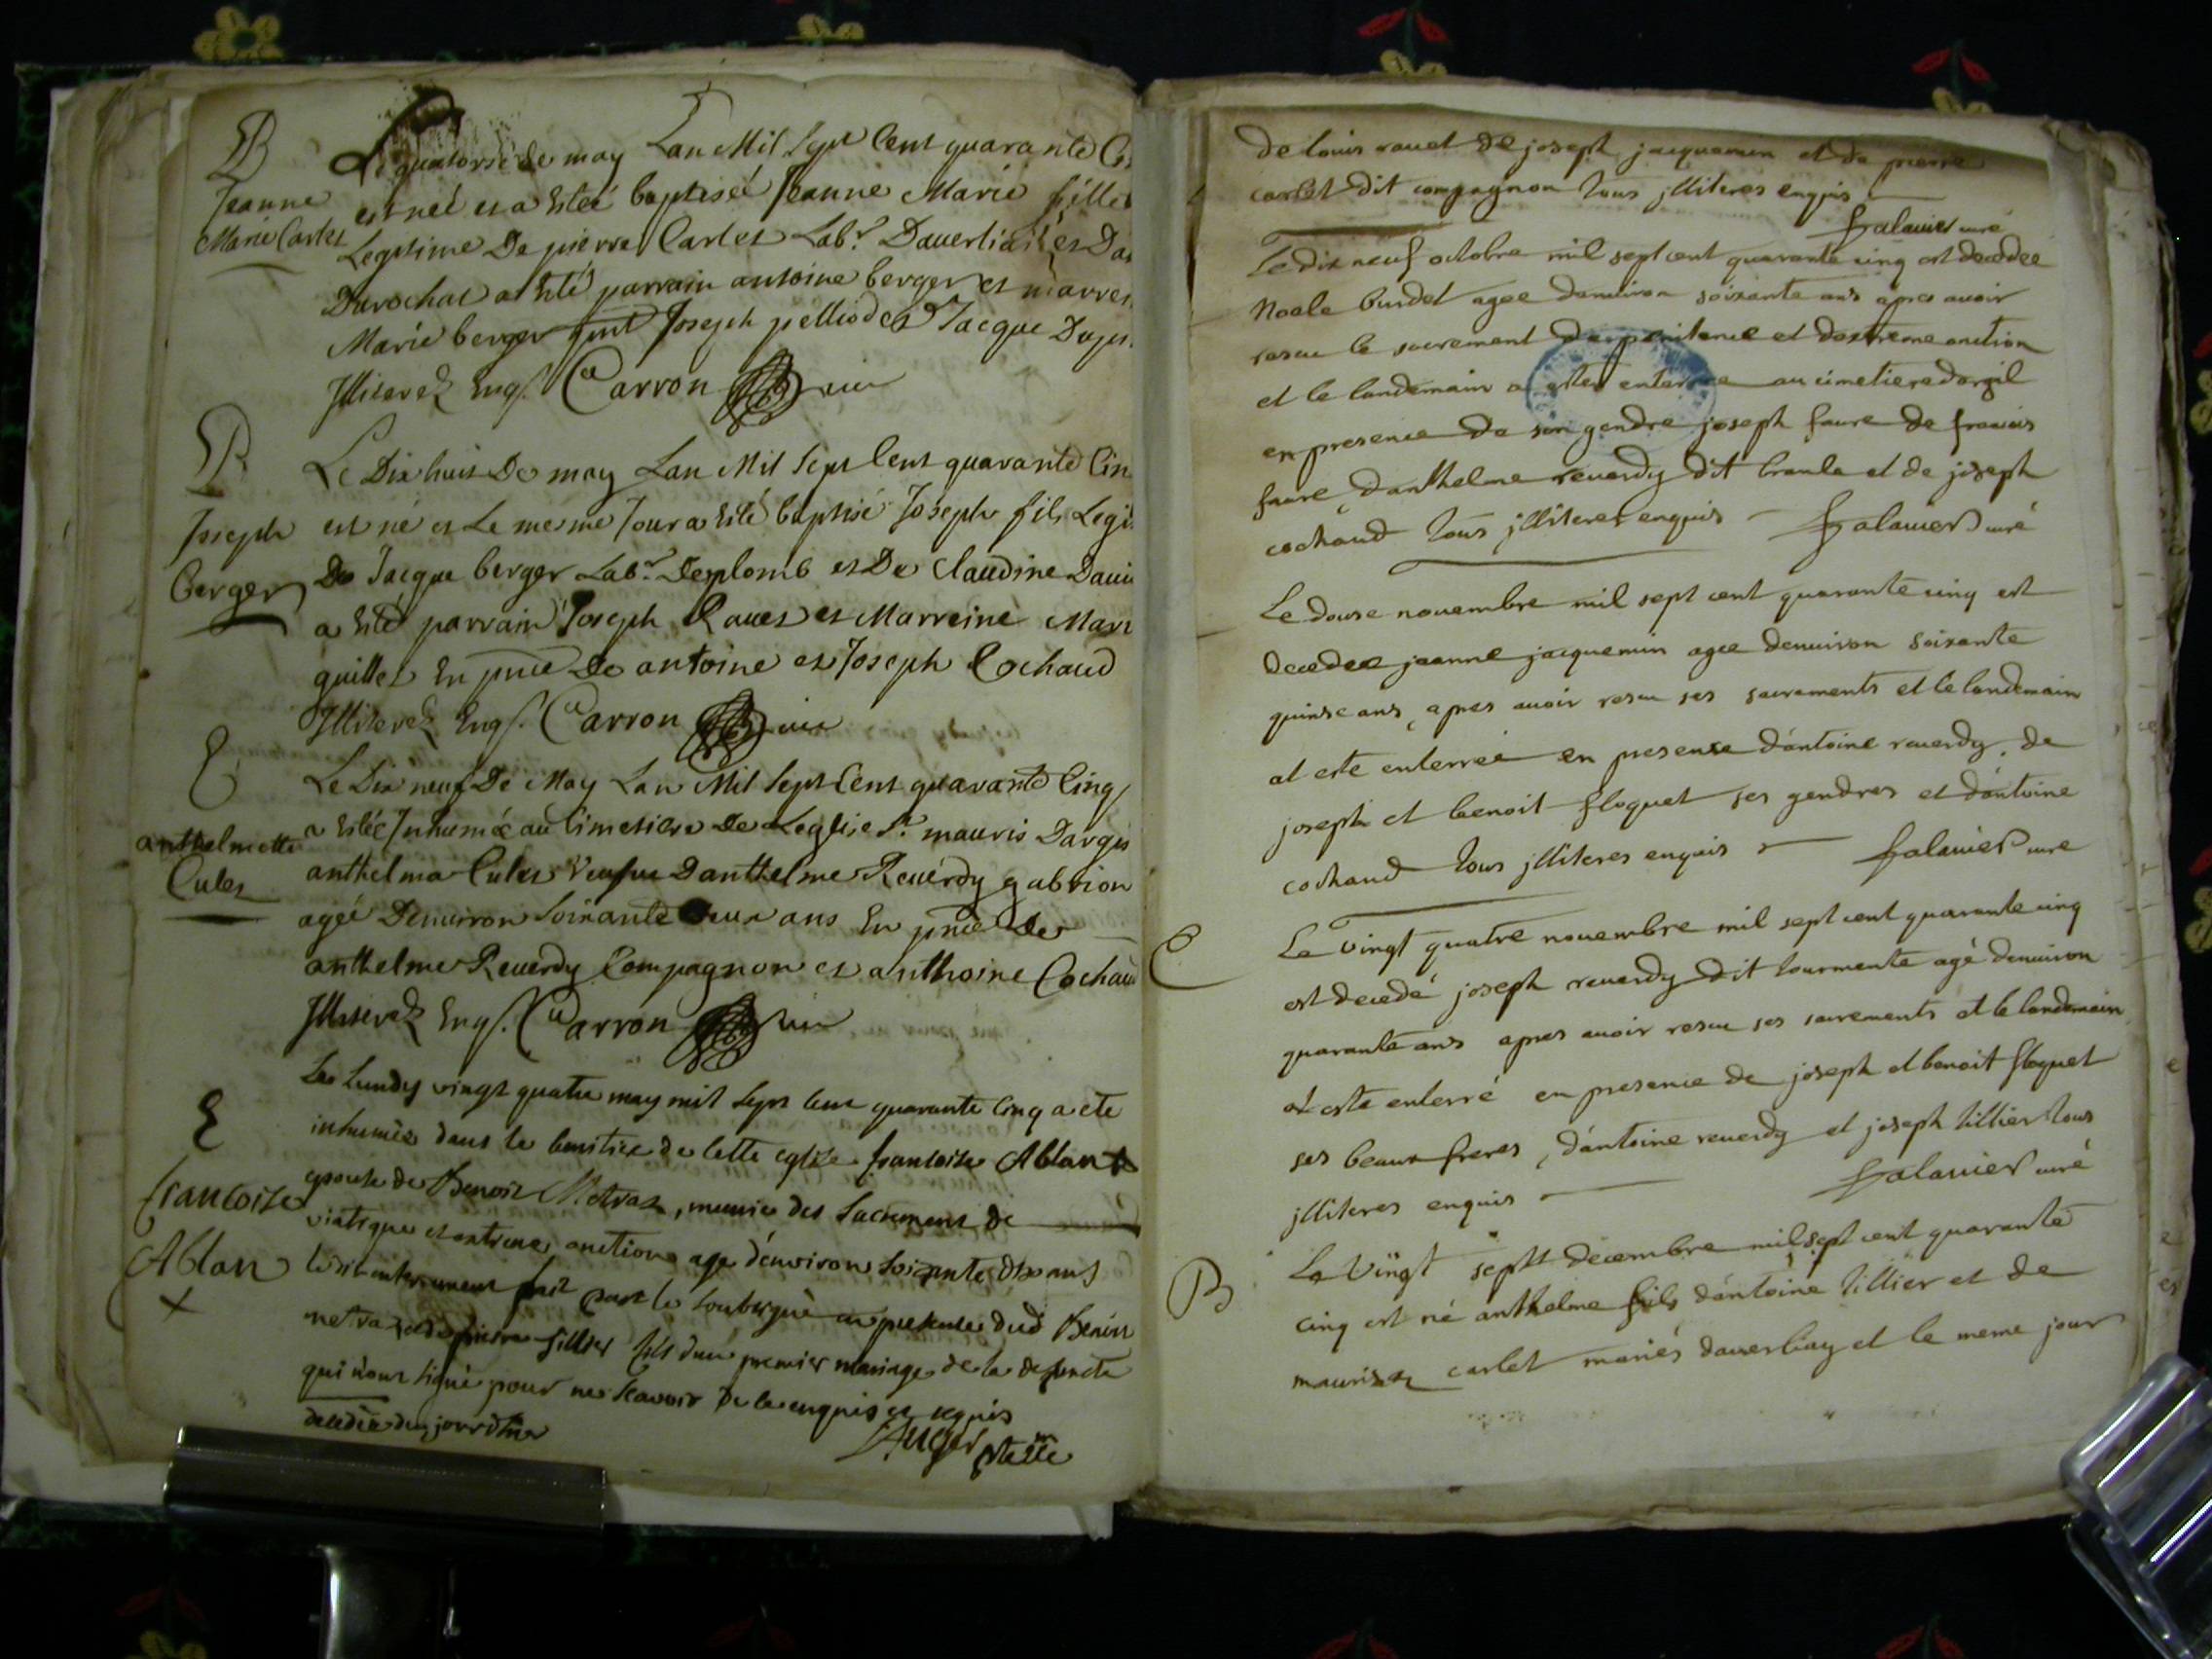 B
Jeanne
Marie Carlet
Le quatorse de may Lan Mil Sept Cent quarante
est neé et a Esteé baptiseé Jeanne Marie fille
Legitime De pierre Carlet Labr. Daverliaz et
Durochat a Esté parrain antoine berger et marrei
Marie berger Joseph pelliod et Jacque
Illiterez Enqs. Carron
B
Joseph
berger
Le Dix huit De may Lan Mil Sept Cent quarante Cin
est né et Le meme Jour a Esté baptisé Joseph fils Legi
De Jacque berger Labr. Desplomb et De Claudine
a Esté parrain Joseph Rauet et Marreine Mari
guillet En pnce De antoine et Joseph Cochaud
Illiterez Enqs. Carron
E
anthelmette
Culet
Le Dix neuf De May Lan Mil Sept Cent quarante Cinq
a Esteé Inhumeé au Cimetiere De Leglise St. mauris Dargis
anthelma Culet Veufue Danthelme Reuerdy gabrion
ageé Denuiron Soixante Deux ans En pnce de
anthelme Reuerdy Compagnon et anthoine Cochaud
Illiterez Enqs. Carron
E
francoise
Ablan
+
Le Lundy vingt quatre may mil Sept Cent quarante Cinq a ete
inhumée dans le Cemitiere de Cette eglise francoise Ablan
epouse de Benoit Metraz, munie des Sacrement de
viatique et extreme onction age d'enuiron Soixante Dix ans
Ledit enterrement fait par le Soubsigné en presence dud Benoit
metraz et de pierre Tillier fils d'un premier mariage de la defuncte
qui n'ont signé pour ne Scavoir De ce enquis et requis
decedée du jour d'hier
Auger
de louis rauet de joseph jacquemin et de pierre
carlet dit compagnon tous jlliteres enquis
falauier curé
Le dix neuf octobre mil sept cent quarante cinq est decedee
Noele burdet agee denuiron soixante ans apres auoir
rescu le sacrement de penitence et dextreme onction
et le landemain a esteé enterree au cimetiere dargil
en presence de son gendre joseph faure de francois
faure, danthelme reuerdy dit branle et de joseph
cochaud tous jlliteres enquis falauier curé
Le douse nouembre mil sept cent quarante cinq est
decedeé jeanne jacquemin agee denuiron soixante
quinse ans, apres auoir rescu ses sacrements et le landemain
at este enterreé en presense d'antoine reuerdy, de
joseph et benoit floquet ses gendres et d'antoine
cochaud tous jlliteres enquis falauier cure
E
Le vingt quatre nouembre mil sept cent quarante cinq
est decedé joseph reuerdy dit tourmente agé denuiron
quarante ans apres auoir rescu ses sacrements et le landemain
at este enterré en presence de joseph et benoit floquet
ses beaux freres, d'antoine reuerdy et joseph tillier tous
jlliteres enquis falauier curé
B
Le vingt septt decembre mil sept cent quarante
cinq est né anthelme fils d'antoine tillier et de
carlet mariés dauerliaz et le meme jour